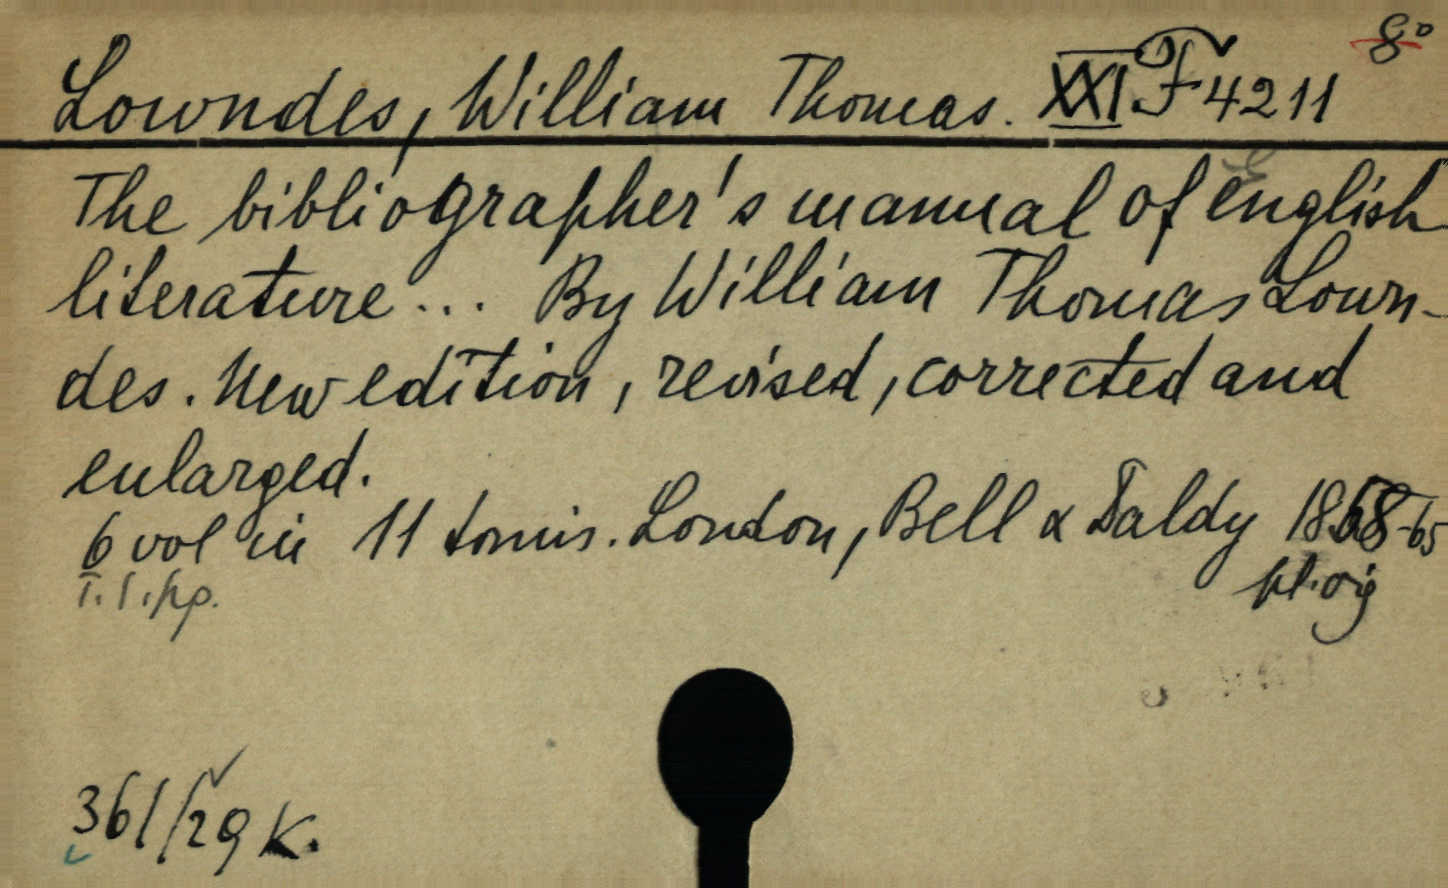 8°
Lowndes, William Thomas. XXI. F 4211
The bibliographer's manual of english
literature... By William Thomas Lown-
des. New edition, revised, corrected and
enlarged.
6 vol in 11 tomis. London, Bell & Daldy 1858-65
pl. ori
361/29 K.